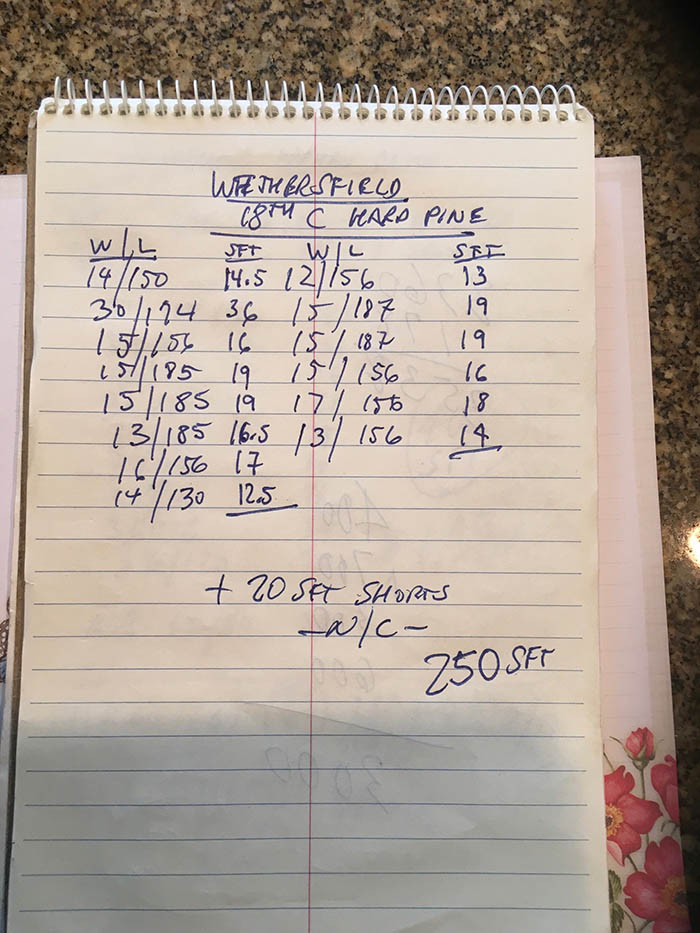 WETHERSFIELD
18TH C HARD PINE
W/L SFT W/L SFT
14/150 14.5 12/156 13
30/174 36 15/187 19
15/156 16 15/187 19
15/185 19 15/156 16
15/185 19 17/156 18
13/185 16.5 13/156 14
16/156 17
14/130 12.5
+ 20 SFT SHORTS
- N/C -
250 SFT